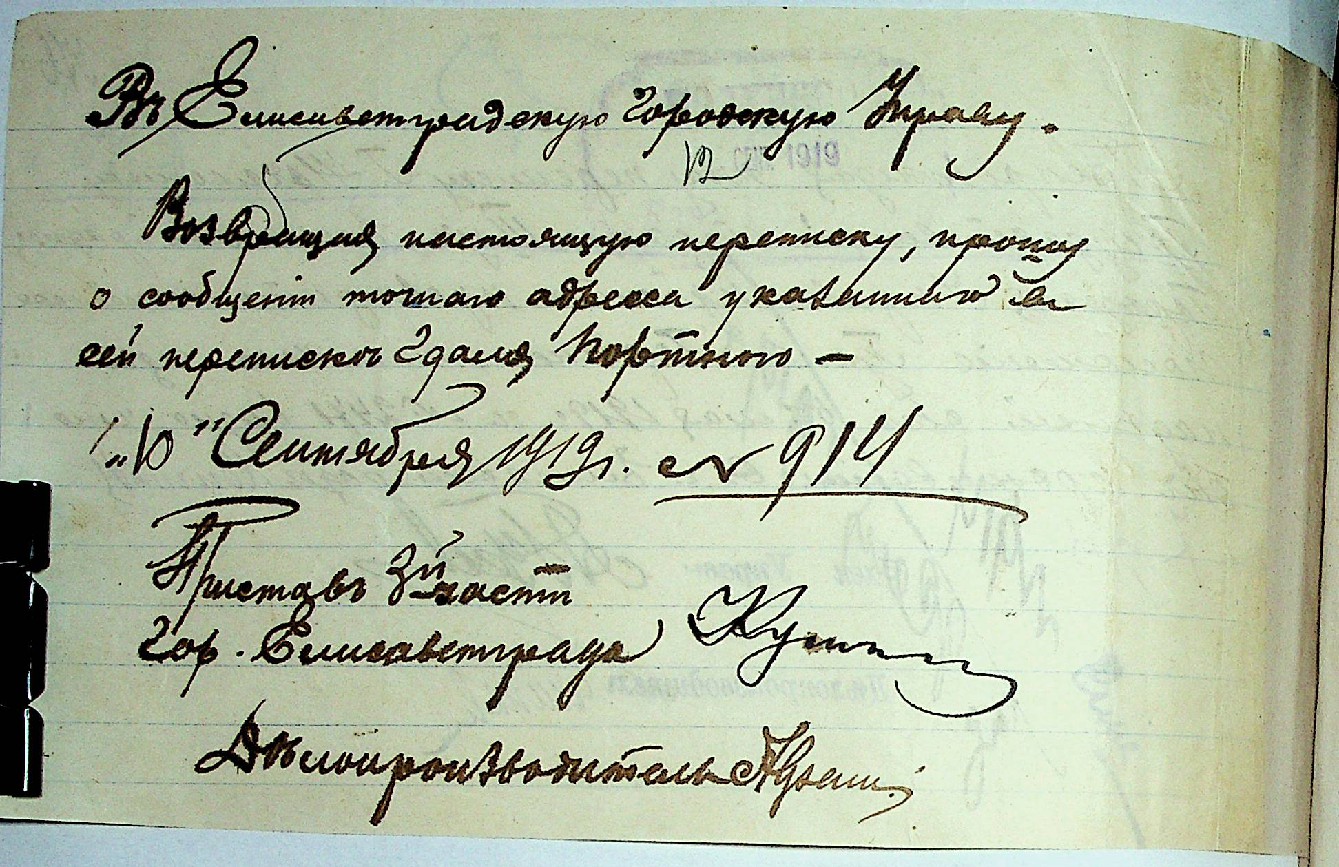 Въ Елисаветградскую городскую Управу.
12 1919
Возвращая настоящую переписку, прошу
о сообщенiи точнаго адресса указаннаго въ
сей перепискѣ Гдаля Портного —
„10" Сентября 1919 г. № 914
Приставъ 3й части
Гор. Елисаветграда
Дѣлопроизводитель